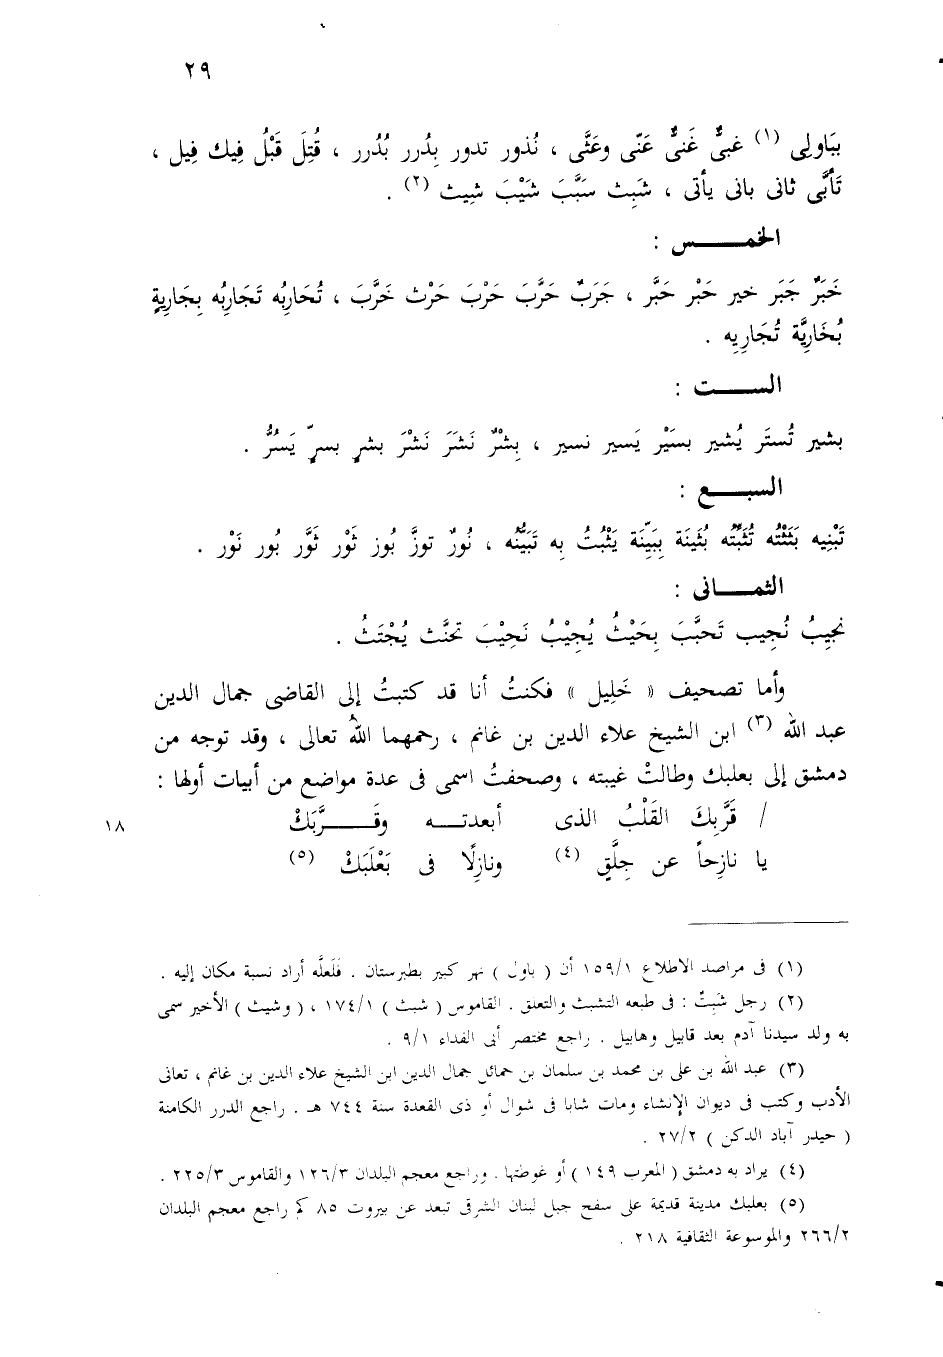 ٢٩
ببَاولِى (١) غبىٌّ غَنىٌّ عَنّى وعَثَّى ، نُذور تدور بِدُرر بُدُرر ، قُتِلَ قَبْلُ فِيك فِيل ،
تَأَبَّى ثانى بانى يأتى ، شَبِث سَبَّبَ شَيْبَ شِيث (٢) .
الخمـــــس :
خَبَرٌ جَبَر خير حَبْر حَبَّر ، جَرَبٌ حَرَّبَ حَرْبَ حَرْث خَرَّبَ ، تُحَاربُه تَجَاربُه بِجَاريةٍ
بُخَارِيَّة تُجَارِيه .
الســـت :
بشير تُستَر يُشير بسَيْر يَسير نسير ، بِشْرٌ نَشَرَ نَشْرَ بشرٍ بسرٍّ يَسُرُّ .
السبـــع :
تَبْنِيه بَثَثْتُه تُثَبِّتُه بُثَينَة بِبَيِّنَة يَثْبُتُ بِه تَبَيُّنُه ، نُورٌ توزَّ بُوز ثَوْر ثَوَّر بُور نَوْر .
الثمـــانى :
نجيِبُ نُجِيب تَحَبَّبَ بِحَيْثُ يُجِيْبُ نَحِيْبَ تحنَّث يُجْتَثُ .
وأما تصحيف « خَلِيل » فكنتُ أنا قد كتبتُ إلى القاضى جمال الدين
عبد الله (٣) ابن الشيخ علاء الدين بن غانم ، رحمهما اللهُ تعالى ، وقد توجه من
دمشق إلى بعلبك وطالتْ غيبته ، وصحفتُ اسمى فى عدة مواضع من أبيات أولها :
/ قَرَّبِكَ القَلْبُ الذى أبعدتــه وقَـــرَّبَكْ ١٨
يا نازِحاً عن جِلَّقٍ (٤) ونازِلًا فى بَعْلَبَكْ (٥)
(١) فى مراصد الاطلاع ١٥٩/١ أن ( باول ) نهر كبير بطبرستان . فلَعلَّه أراد نسبة مكان إليه .
(٢) رجل شَبِثٌ : فى طبعه التشبث والتعلق . القاموس ( شبث ) ١٧٤/١ ، ( وشيث ) الأخير سمى
به ولد سيدنا آدم بعد قابيل وهابيل . راجع مختصر أبى الفداء ٩/١ .
(٣) عبد الله بن على بن محمد بن سلمان بن حمائل جمال الدين ابن الشيخ علاء الدين بن غانم ، تعانى
الأدب وكتب فى ديوان الإنشاء ومات شابا فى شوال أو ذى القعدة سنة ٧٤٤ هـ . راجع الدرر الكامنة
( حيدر آباد الدكن ) ٢٧/٢ .
(٤) يراد به دمشق ( المعرب ١٤٩ ) أو غوطتها . وراجع معجم البلدان ١٢٦/٣ والقاموس ٢٢٥/٣ .
(٥) بعلبك مدينة قديمة على سفح جبل لبنان الشرقى تبعد عن بيروت ٨٥ كم راجع معجم البلدان
٢٦٦/٢ والموسوعة الثقافية ٢١٨ .